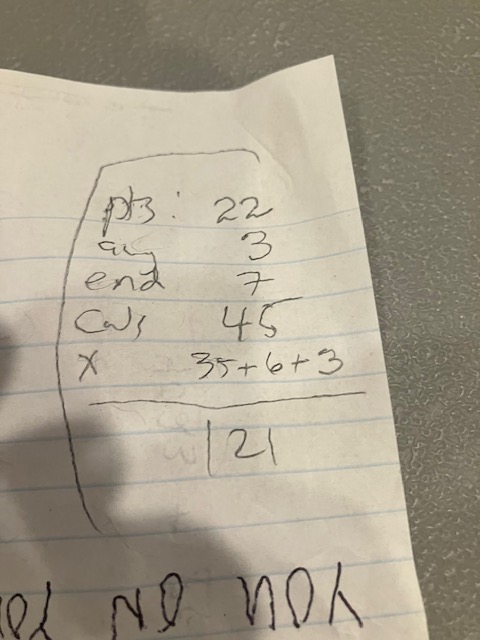 pts: 22
avg 3
end 7
Cols 45
X 35+6+3
121
YOU ON